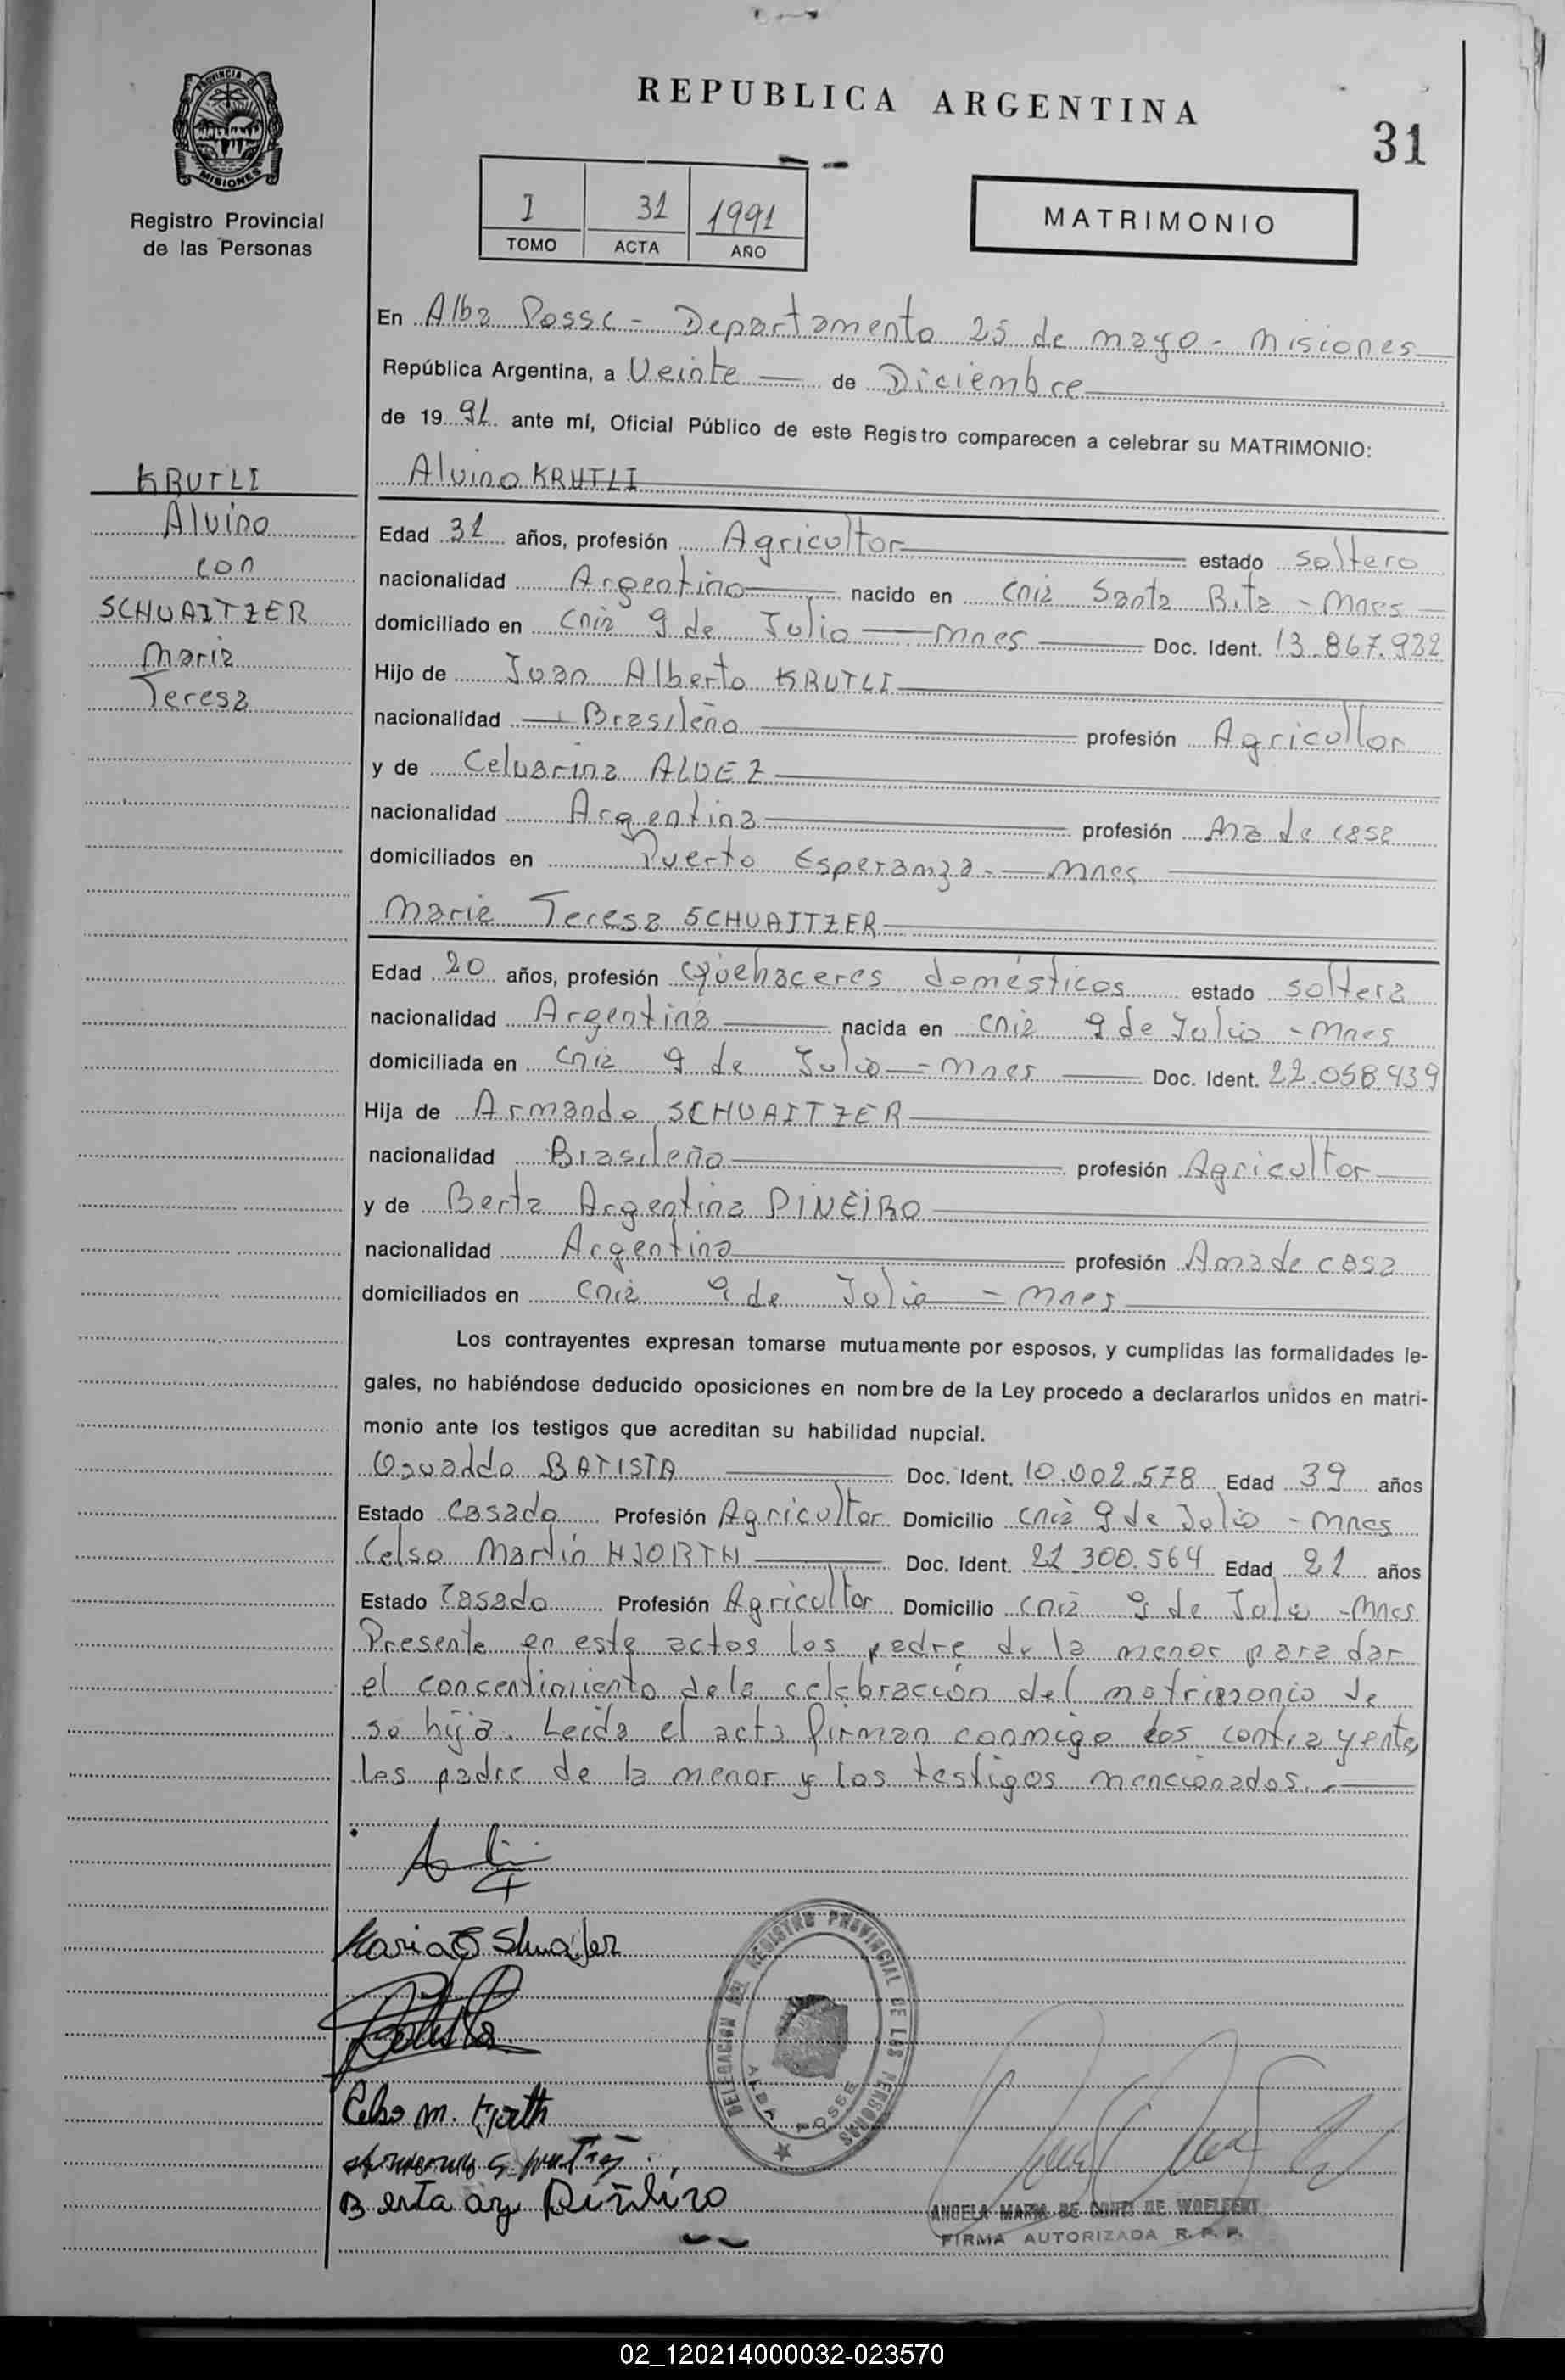 PROVINCIA DE
MISIONES
Registro Provincial
de las Personas
REPUBLICA ARGENTINA
31
I 31 1991
TOMO ACTA AÑO
MATRIMONIO
En Alba Posse - Departamento 25 de mayo - Misiones
República Argentina, a Veinte de Diciembre
de 1991 ante mí, Oficial Público de este Registro comparecen a celebrar su MATRIMONIO:
KRUTLI
Alvino
con
SCHUAITZER
Maria
Teresa
Alvino KRUTLI
Edad 31 años, profesión Agricultor estado soltero
nacionalidad Argentino nacido en Cnia Santa Rita - Mnes
domiciliado en Cnia 9 de Julio - Mnes Doc. Ident. 13.867.922
Hijo de Juan Alberto KRUTLI
nacionalidad Brasileño profesión Agricultor
y de Celvarina ALVEZ
nacionalidad Argentina profesión Ama de casa
domiciliados en Puerto Esperanza - Mnes
Maria Teresa SCHUAITZER
Edad 20 años, profesión Quehaceres domésticos estado soltera
nacionalidad Argentina nacida en Cnia 9 de Julio - Mnes
domiciliada en Cnia 9 de Julio - Mnes Doc. Ident. 22.058.439
Hija de Armando SCHUAITZER
nacionalidad Brasileño profesión Agricultor
y de Berta Argentina PINEIRO
nacionalidad Argentina profesión Ama de casa
domiciliados en Cnia 9 de Julio - Mnes
Los contrayentes expresan tomarse mutuamente por esposos, y cumplidas las formalidades le-
gales, no habiéndose deducido oposiciones en nombre de la Ley procedo a declararlos unidos en matri-
monio ante los testigos que acreditan su habilidad nupcial.
Osvaldo BATISTA Doc. Ident. 10.002.578 Edad 39 años
Estado Casado Profesión Agricultor Domicilio Cnia 9 de Julio - Mnes
Celso Martin HJORTH Doc. Ident. 21.300.564 Edad 21 años
Estado Casado Profesión Agricultor Domicilio Cnia 9 de Julio - Mnes
Presente en este actos los padre de la menor para dar
el concentimiento de la celebración del matrimonio de
su hija. Leida el acta firman conmigo los contrayente,
los padre de la menor y los testigos mencionados.
Celso M. Hjorth
Berta Arg Piñeiro
DELEGACION DEL REGISTRO PROVINCIAL DE LAS PERSONAS
ALBA POSSE
ANGELA MARIA DE CONTI DE WOELFERT
FIRMA AUTORIZADA R. P. P.
02_120214000032-023570